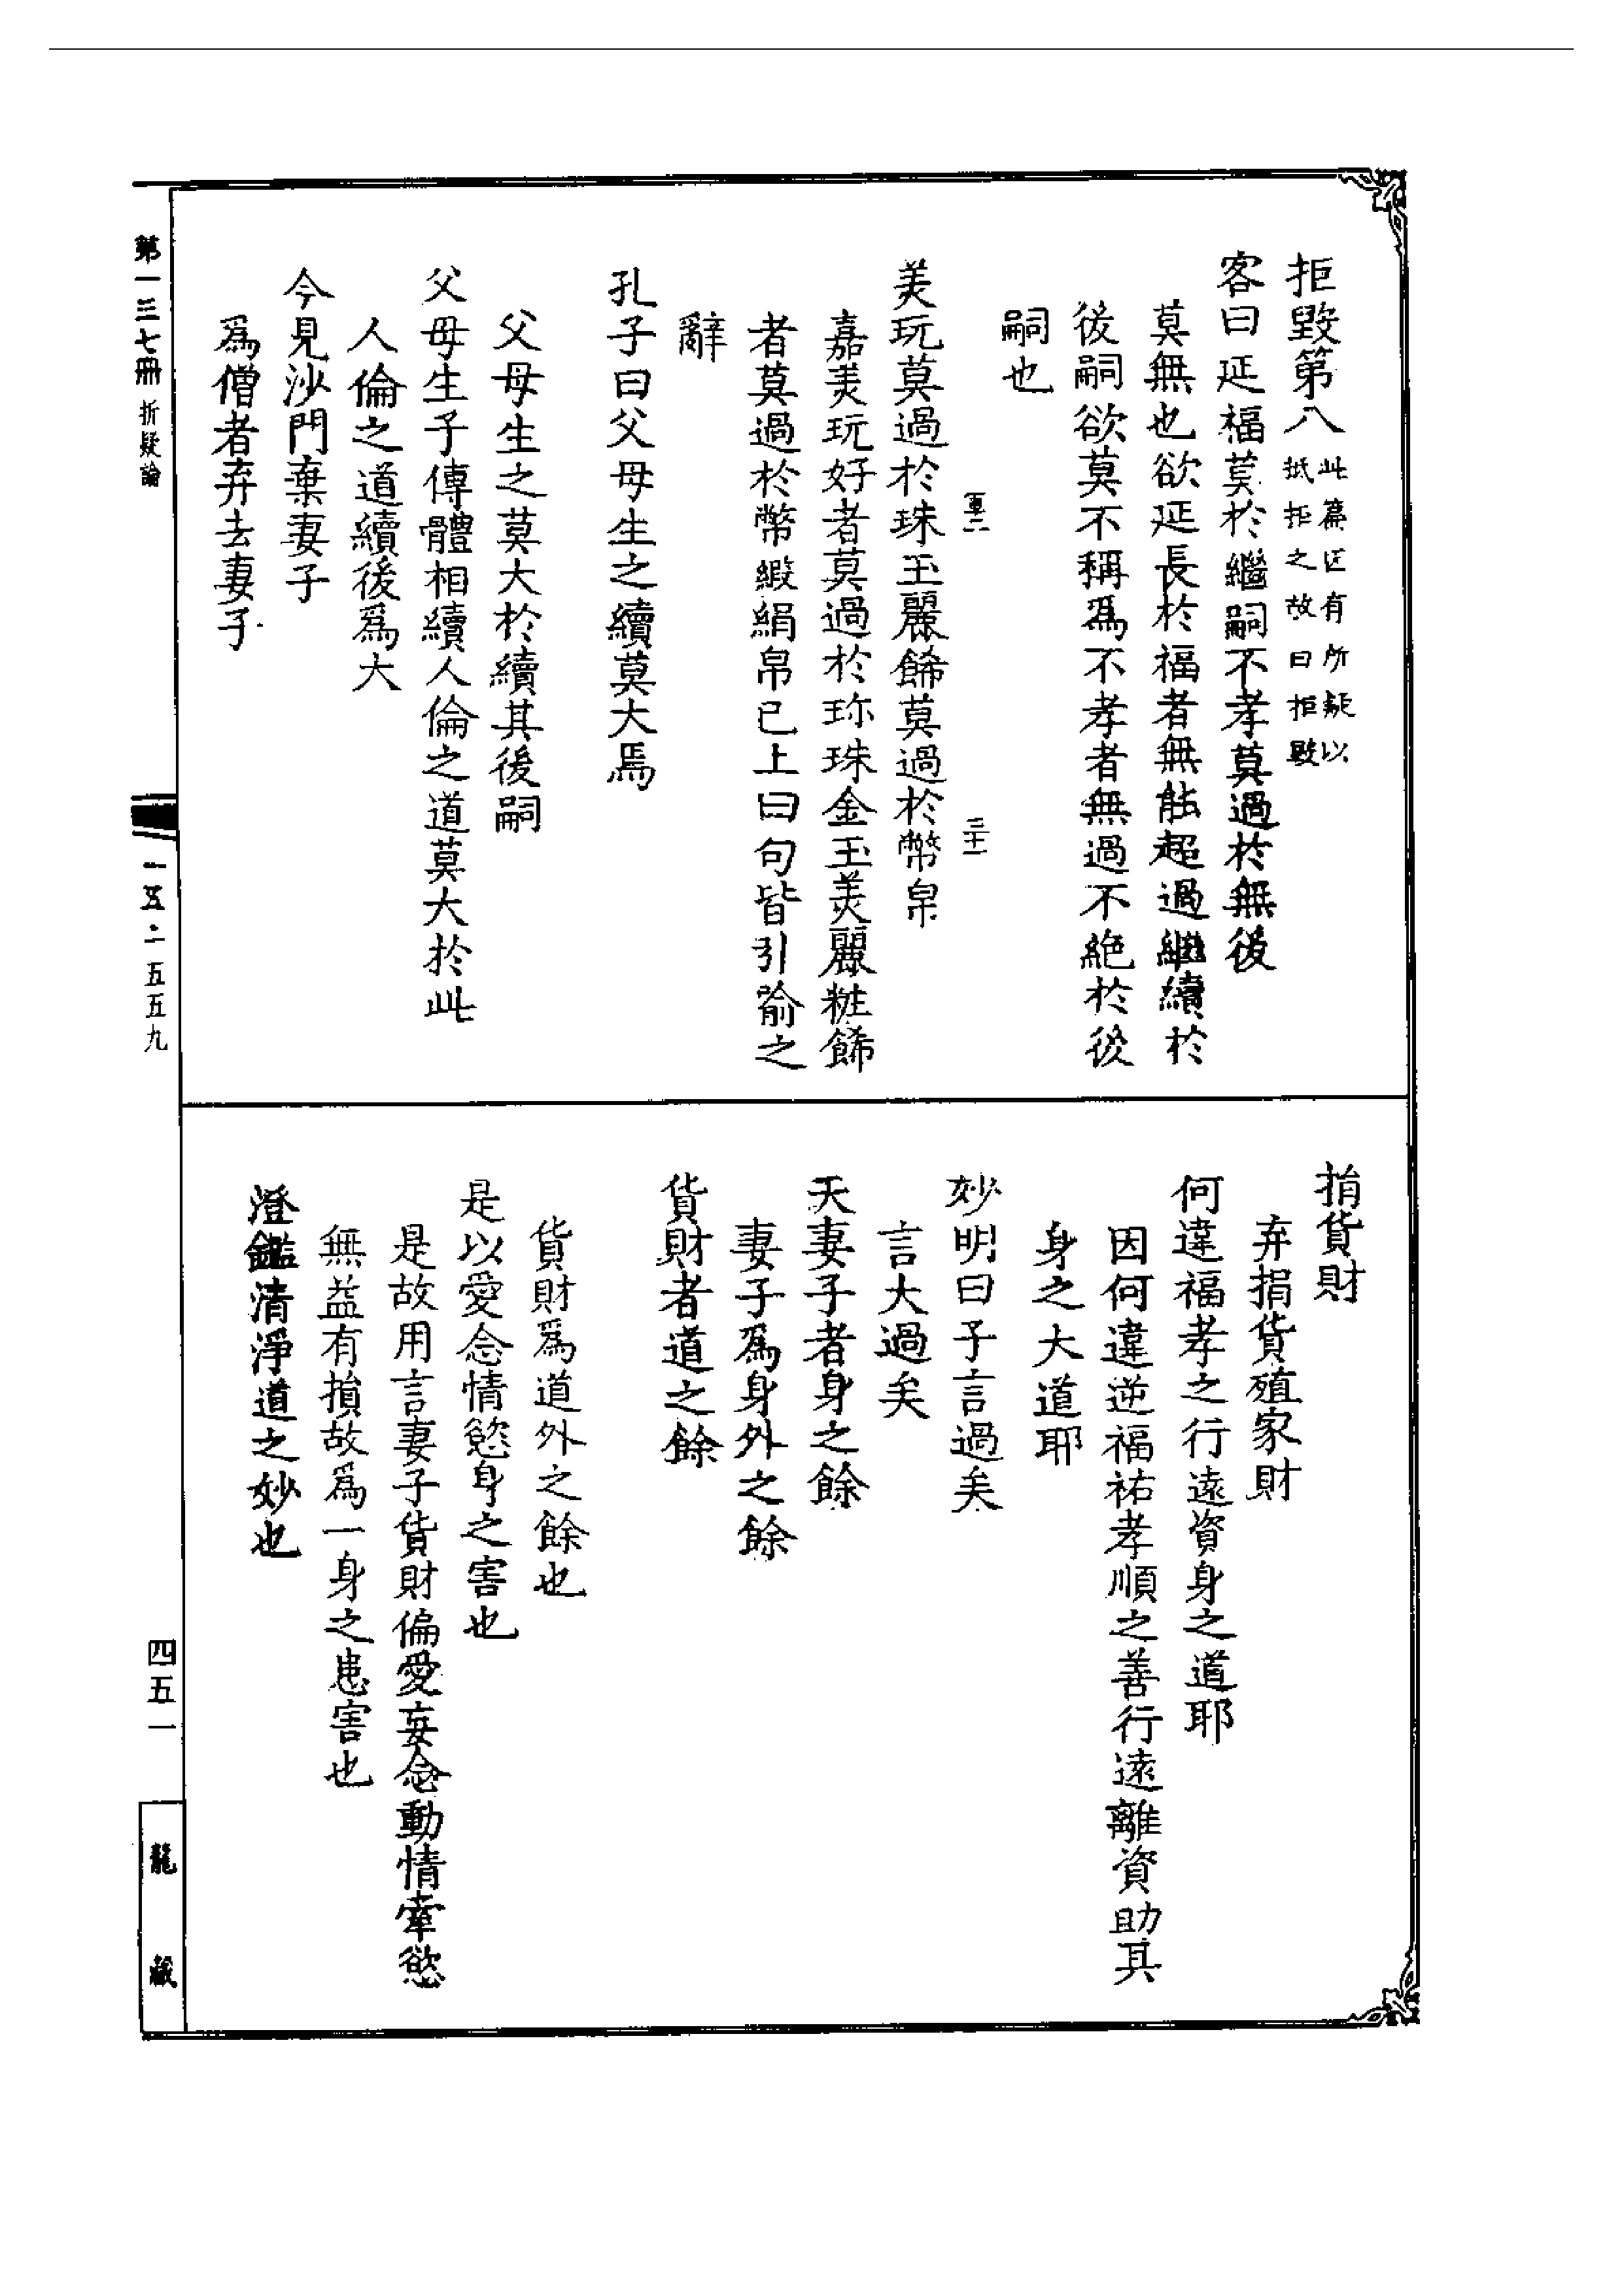 拒毀第八 此篇因有所疑以
抵拒之故曰拒毀
客曰延福莫於繼嗣不孝莫過於無後
莫無也欲延長於福者無能超過繼續於
後嗣欲莫不稱爲不孝者無過不絶於後
嗣也
美玩莫過於珠玉麗餙莫過於幣帛
嘉美玩好者莫過於珎珠金玉美麗粧餙
者莫過於幣緞絹帛已上曰句皆引喻之
辭
孔子曰父母生之續莫大焉
父母生之莫大於續其後嗣
父母生子傳體相續人倫之道莫大於此
人倫之道續後爲大
今見沙門棄妻子
爲僧者弃去妻子
捐貨財
弃捐貨殖家財
何違福孝之行遠資身之道耶
因何違逆福祐孝順之善行遠離資助其
身之大道耶
妙明曰子言過矣
言大過矣
夭妻子者身之餘
妻子爲身外之餘
貨財者道之餘
貨財爲道外之餘也
是以愛念情慾身之害也
是故用言妻子貨財偏愛妄念動情牽慾
無益有損故爲一身之患害也
澄鑑清淨道之妙也
第一三七冊 折疑論
一五·二五五九
四五一
龍藏